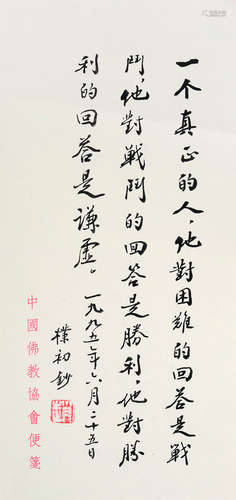 一个真正的人，他對困難的回答是戰
鬥，他對戰鬥的回答是勝利，他對勝
利的回答是謙虛。
一九九五年六月二十五日
樸初鈔
中國佛教協會便箋